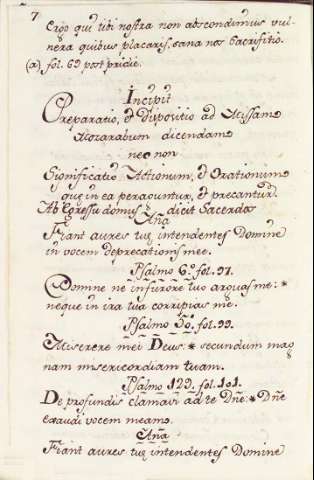 7
Ergo qui tibi nostra non abscondimus vul-
nera quibus placaris, sana nos Sacrifitio.
(a) fol. 69 post pridie.
Incipit
Preparatio, et dispositio ad Missam
Mozarabum dicendam
nec non
Significatio Actionum, et Orationum
quę in ea peraguntur, et precantur.
Ab Egressu domus dicit Sacerdos
Aña
Fiant aures tuę intendentes Domine
in vocem deprecationis mee.
Psalmo 6. fol. 97.
Domine ne in furore tuo arguas me: *
neque in ira tua corripias me.
Psalmo 50. fol. 99.
Miserere mei Deus: * secundum mag
nam misericordiam tuam.
Psalmo 129. fol. 101.
De profundis clamavi ad te Dñe: * Dñe
exaudi vocem meam.
Aña
Fiant aures tuę intendentes Domine